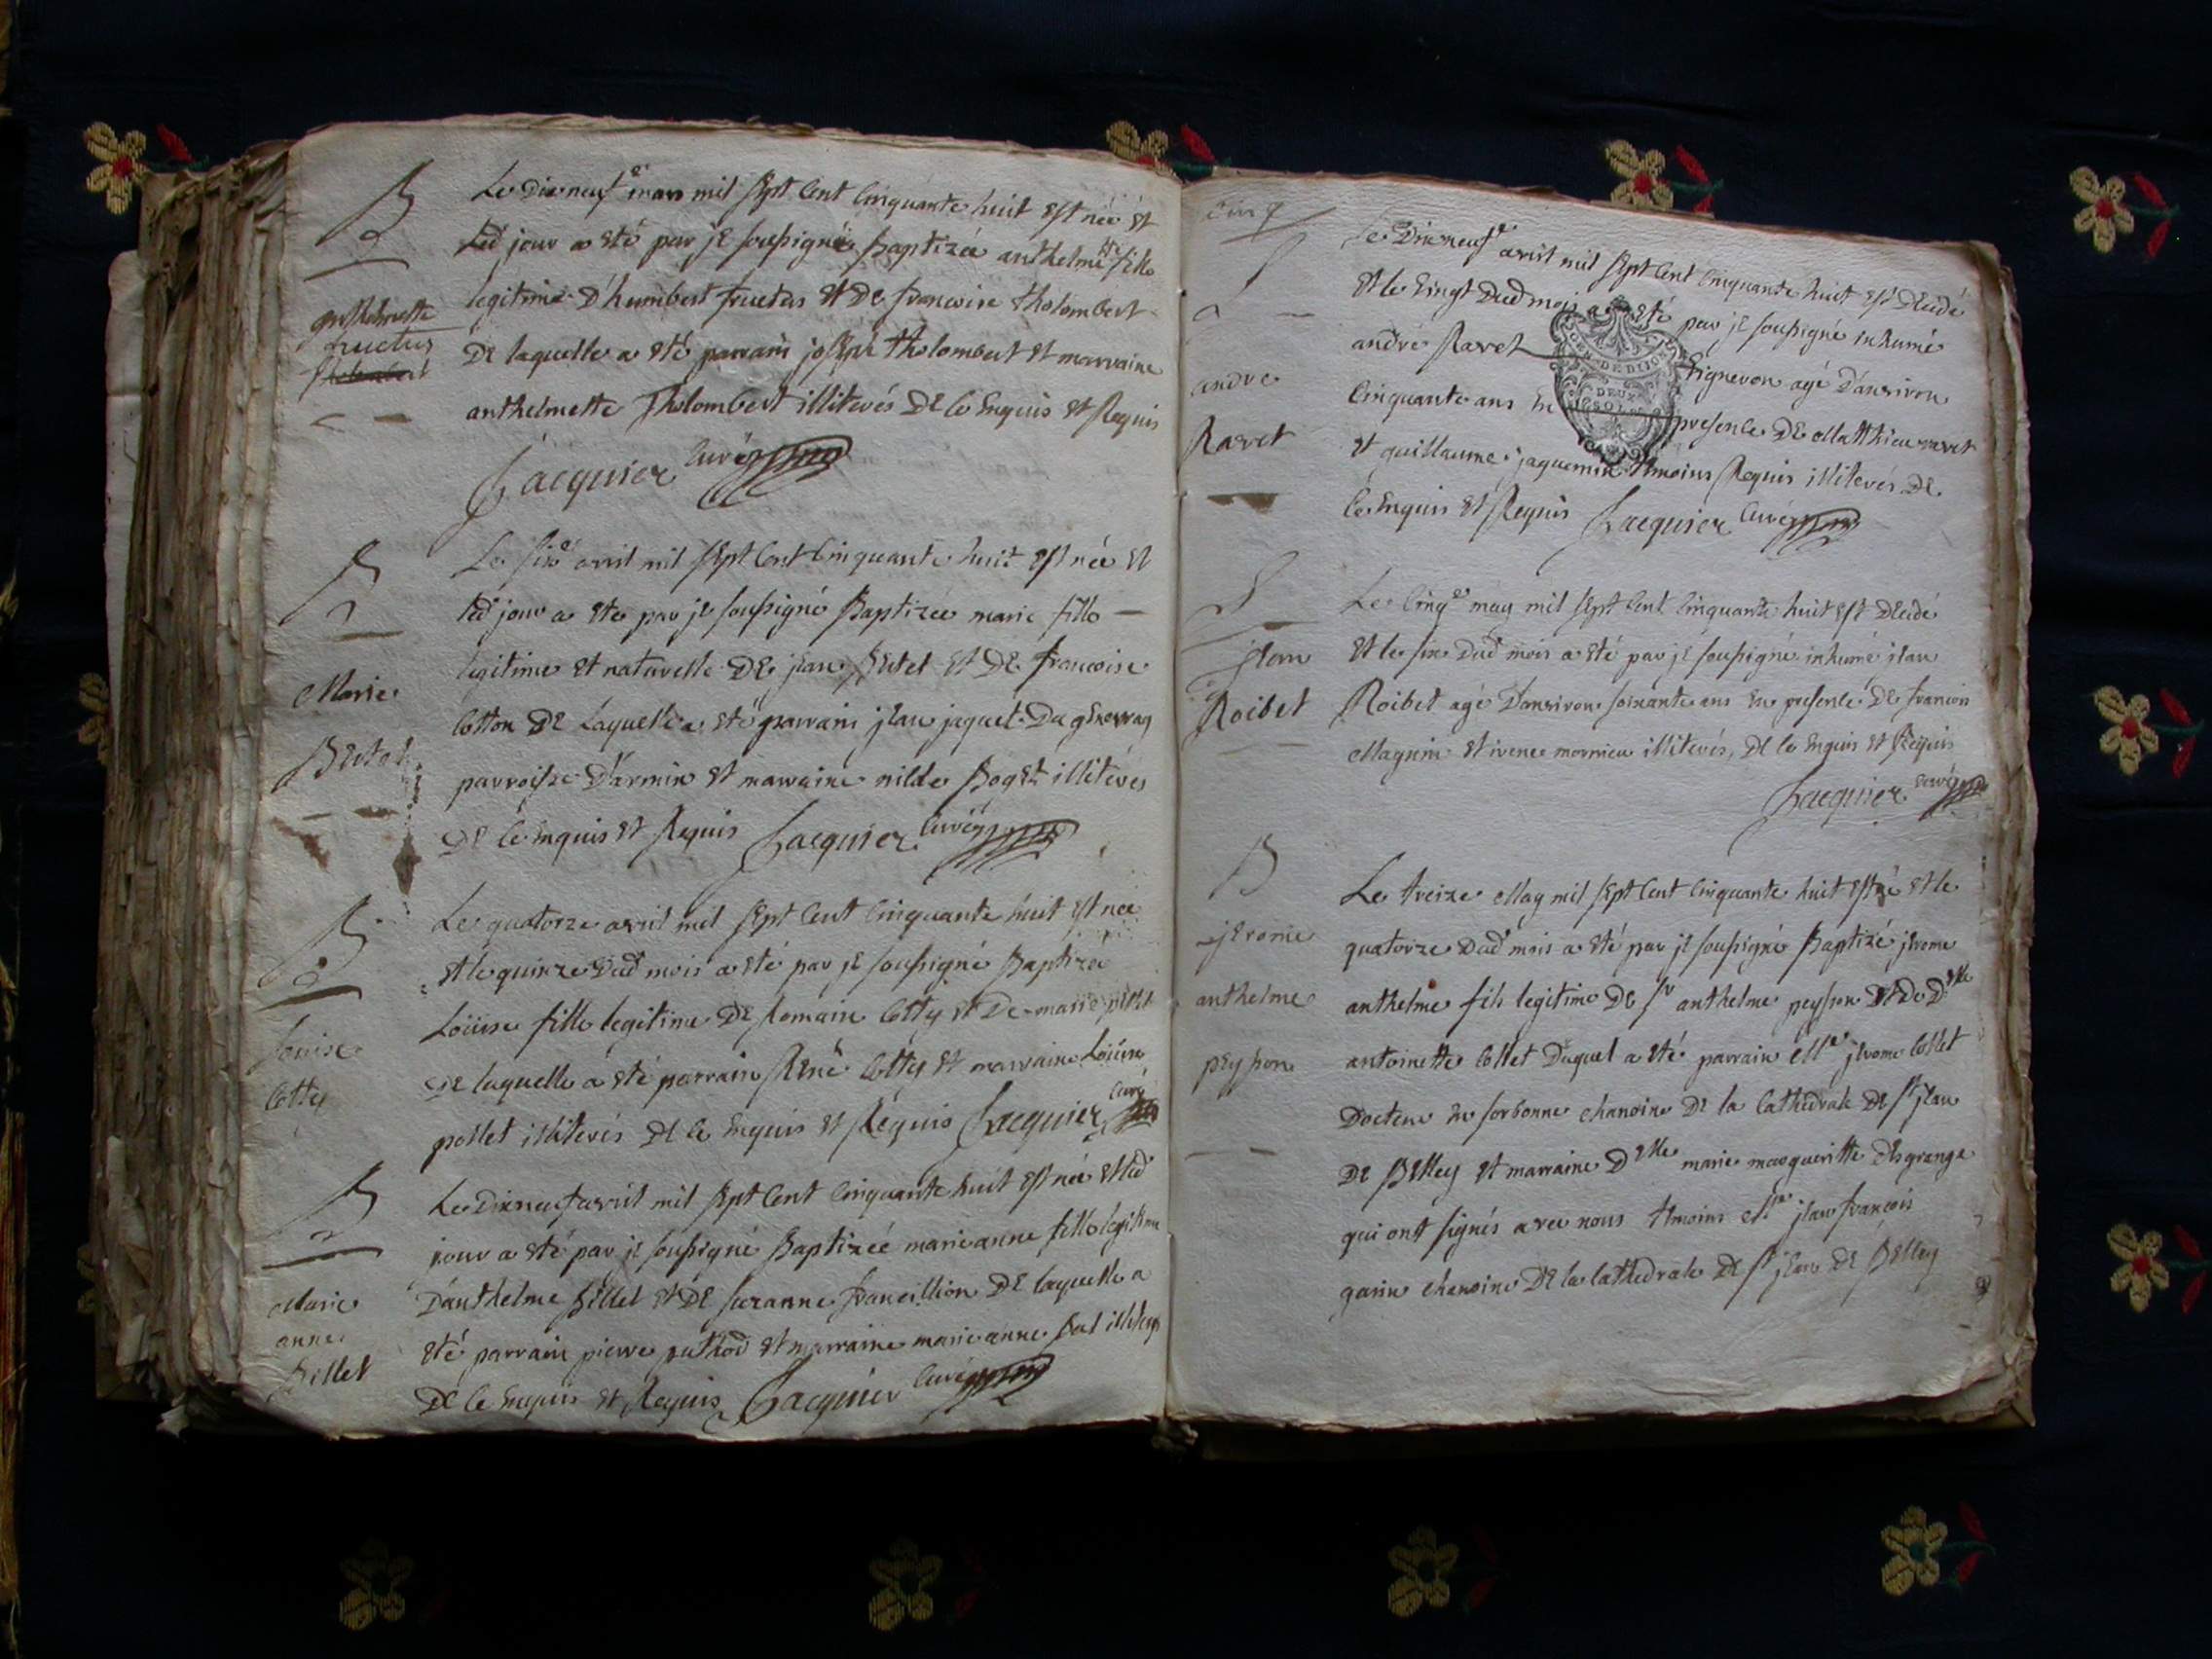 B
anthelmette
fructus
Le Dixneufe mars mil sept cent cinquante huit est née et
led jour a eté par je soussigné Baptizée anthelmette fille
legitime D'humbert fructus et De francoise tholombert
De laquelle a eté parrain joseph tholombert et marraine
anthelmette Tholombert illiterés De ce Enquis et Requis
Jacquier curé
B
Marie
Butet
Le sixe avril mil sept cent cinquante huit est née et
led jour a eté par je soussigné Baptizée marie fille
legitime et naturelle De jean Butet et De francoise
Cotton De Laquelle a eté parrain jean jaquet Du
parroisse D'armix et marraine Boget illiterés
De ce Enquis et Requis Jacquier curé
B
Louise
Cotty
Le quatorze avril mil sept cent cinquante huit est née
et le quinze Dud mois a eté par je soussigné Baptizée
Loüise fille legitime De Romain Cotty et De marie
De laquelle a eté parrain René Cotty et marraine Loüise
pollet illiterés De ce Enquis et Requis Jacquier curé
B
Marie
anne
Billet
Le Dixneuf avril mil sept cent cinquante huit est née et led
jour a eté par je soussigné Baptizée marie anne fille legitime
D'anthelme Billet et De suzanne francillion De laquelle a
eté parrain pierre puthod et marraine marie anne illiterés
De ce Enquis et Requis Jacquier curé
cinq
S
andre
Ravet
Le Dixneufe avril mil sept cent cinquante huit est Decedé
et le vingt Dud mois a eté par je soussigné inhumé
andré Ravet vigneron agé D'environ
cinquante ans En presence De Matthieu ravet
et guillaume jaquemin temoins Requis illiterés De
ce Enquis et Requis Jacquier curé
GEN. DE DIJON
DEUX
SOLS
S
jean
Roibet
Le cinqe may mil sept cent cinquante huit est Decedé
et le six Dud mois a eté par je soussigné inhumé jean
Roibet agé D'environ soixante ans En presence De francois
Magnin et irene mornieu illiterés, De ce Enquis et Requis
Jacquier curé
B
jerome
anthelme
peysson
Le treize May mil sept cent cinquante huit est né et le
quatorze Dud mois a eté par je soussigné Baptizé jerome
anthelme fils legitime De sr anthelme peysson et De Delle
antoinette Collet Duquel a eté parrain Mre jerome Collet
Docteur En sorbonne chanoine De la Cathedrale De st jean
De Belley et marraine Delle marie margueritte Desgrange
qui ont signés avec nous temoins Mre jean francois
garin chanoine De la Cathedrale De st jean De Belley